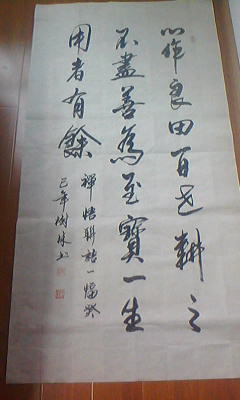 心作良田百世耕之
不盡善為至寶一生
用者有餘
禪悟聯語一幅癸
巳年樹林书